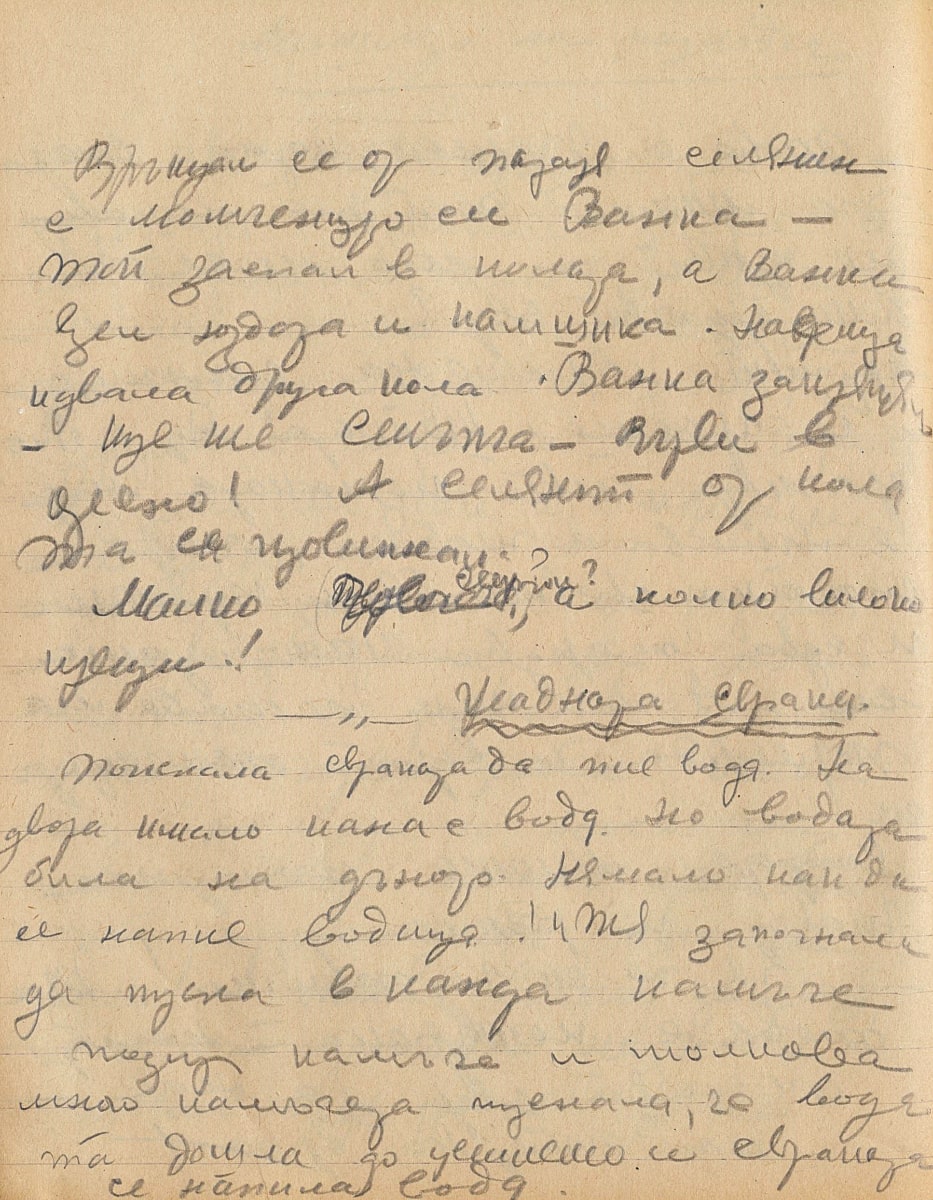 Връщал се от пазаря селянин
с момченцето си Ванка –
той заспал в колата, а Ванка
взел юздата и камшика. Насреща
идвала друга кола. Ванка
– Ще ше – в
дясно! А селянът от кола
та се
Малко, а колко високо
пещи!
—„— Жадната сврака.
Поискала свраката да пие водя. На
двора имало кана с водя. Но водата
била на дъното. Нямало как да
се напие водица! И тя започнала
да пуска в каната камъче
подир камъче и толкова
много камъчета пускала, че водя
та дошла до ушието и свраката
се напила водя.